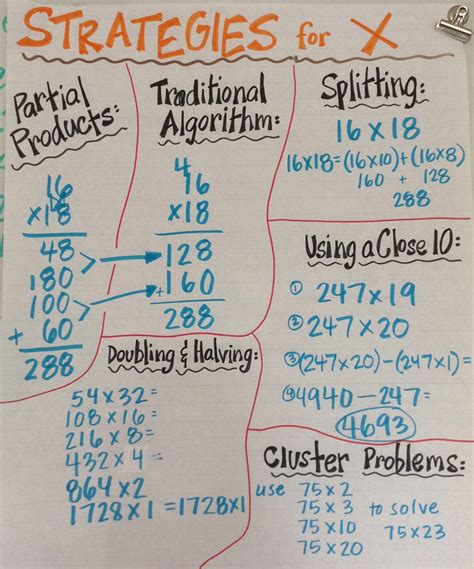 STRATEGIES for X
Partial
Products:
16
x18
48
180
100
+ 60
288
Traditional
Algorithm:
4
16
x18
128
+160
288
Splitting:
16x18
16x18=(16x10)+(16x8)
160 + 128
288
Using a Close 10:
① 247x19
② 247x20
③ (247x20)-(247x1)=
④ 4940-247=
4693
Doubling & Halving:
54x32=
108x16=
216x8=
432x4=
864x2
1728x1=1728x1
Cluster Problems:
use 75x2
75x3 to solve
75x10 75x23
75x20